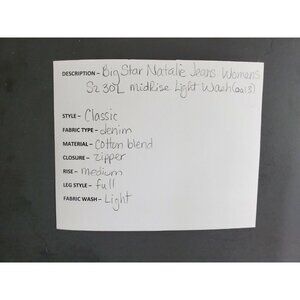 DESCRIPTION - Big Star Natalie Jeans Womens
Sz 30L midRise Light Wash
STYLE - Classic
FABRIC TYPE - denim
MATERIAL - Cotton blend
CLOSURE - Zipper
RISE - medium
LEG STYLE - full
FABRIC WASH - Light